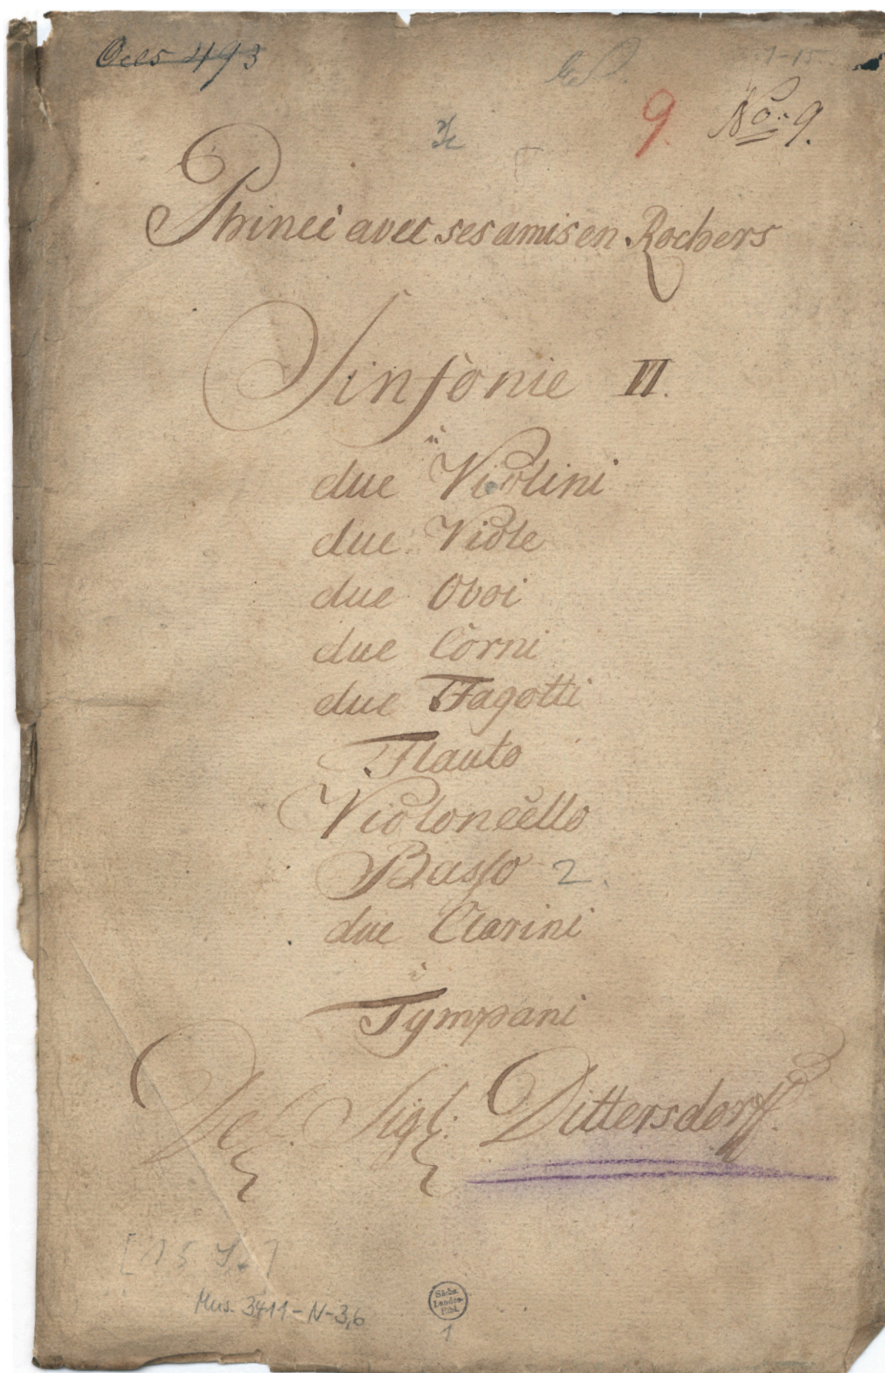 Oels 493
9. No: 9.
Phineé avec ses amis en Rochers
Sinfonie VI.
à
due Violini
due Viole
due Oboi
due Corni
due Fagotti
Flauto
Violoncello
Basso 2
due Clarini
è
Tympani
Del: Sigl: Dittersdorff.
[15 St.]
Mus. 3411-N-3,6
Sächs.
Landes-
Bibl.
1